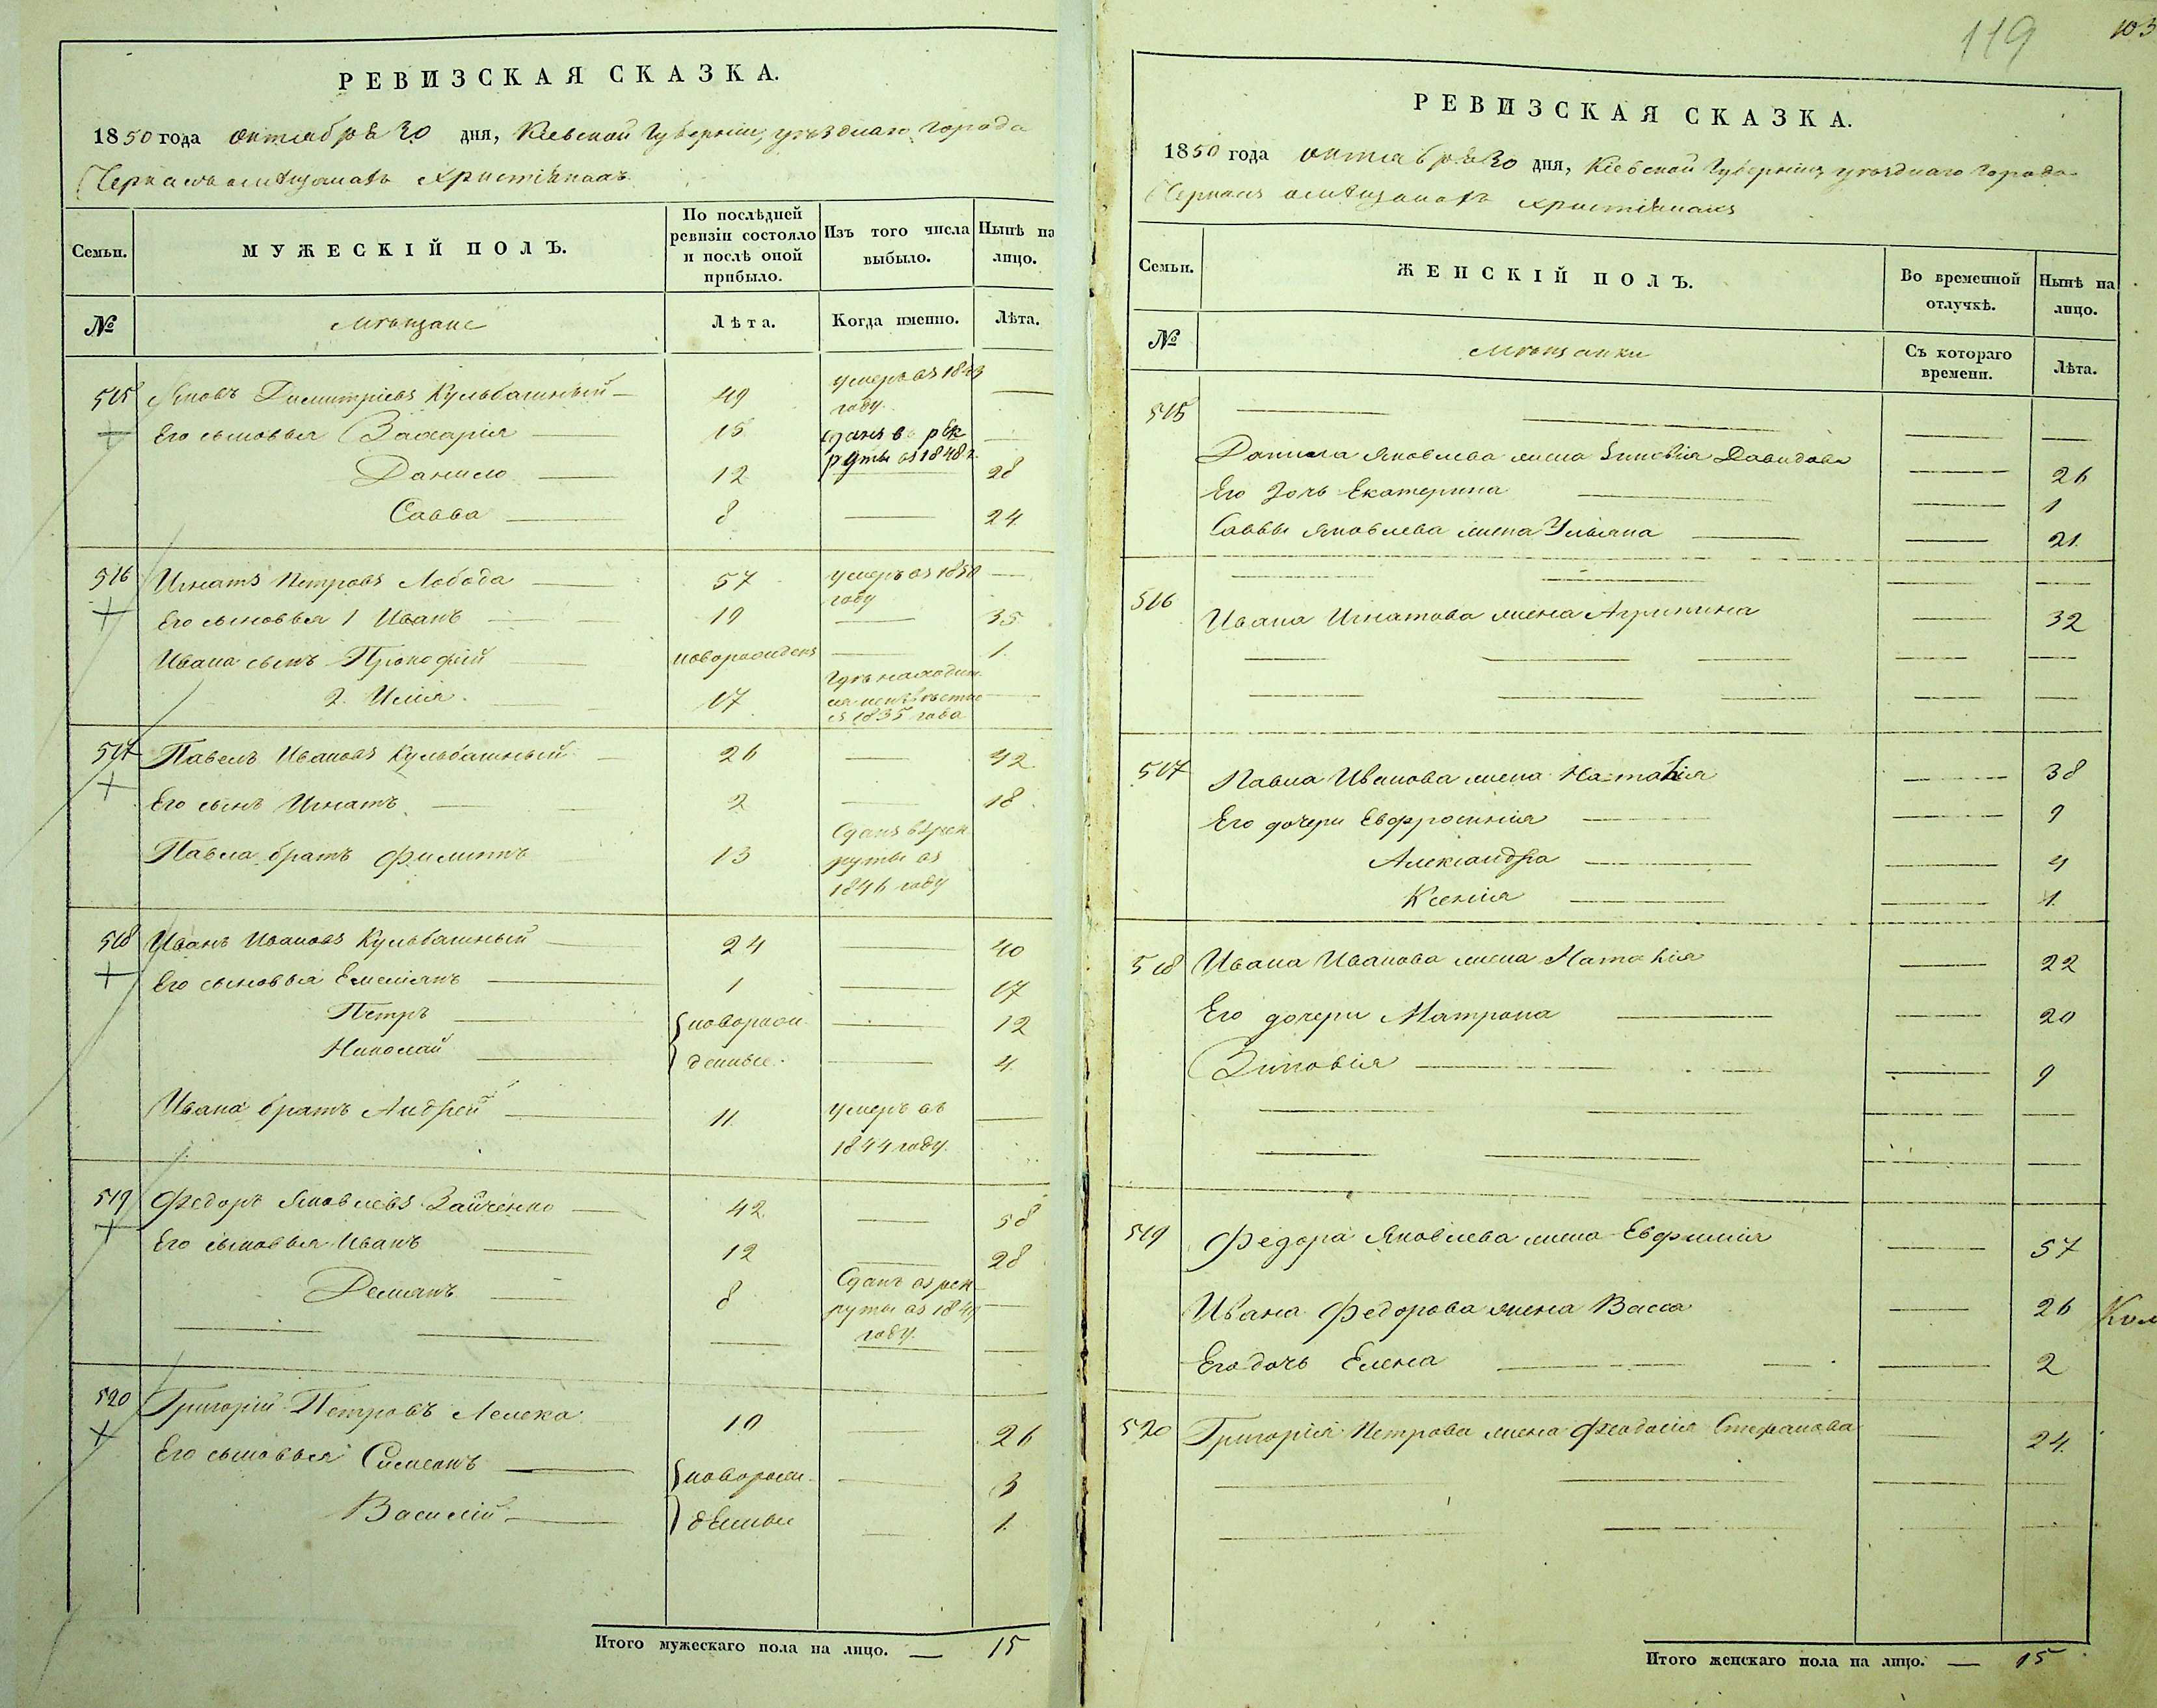 119
103
РЕВИЗСКАЯ СКАЗКА.
1850 года октября 30 дня, Кіевской Губерніи, уѣзднаго города
Черкасъ о мѣщанахъ христіянахъ
Семьи.
МУЖЕСКІЙ ПОЛЪ.
По послѣдней ревизіи состояло и послѣ оной прибыло.
Изъ того числа выбыло.
Нынѣ на лицо.
№
мѣщане
Лѣта.
Когда именно.
Лѣта.
515 Яковъ Димитріевъ Кульбашный — 49 умеръ въ 1843 году. —
Его сыновья Захарія — 15 сданъ въ рекруты въ 1848 г. —
Данило — 12 — 28
Савва — 8 — 24
516 Игнатъ Петровъ Лобода — 57 умеръ въ 1850 году —
Его сыновья 1 Иванъ — 19 — 35
Ивана сынъ Прокофій — новорожденъ — 1.
2. Илія. — 17 гдѣ находится неизвѣстно съ 1835 года —
517 Павелъ Ивановъ Кульбашный — 26 — 42
Его сынъ Игнатъ — 2 — 18
Павла братъ Филиппъ 13 Сданъ въ рекруты въ 1846 году
518 Иванъ Ивановъ Кульбашный — 24 — 40
Его сыновья Емеліянъ — 1 — 17
Петръ — { новорож — 12
Николай — } денные. — 4
Ивана братъ Андрей — 11. умеръ въ 1844 году. —
519 Федоръ Яковлевъ Зайченко — 42 — 58
Его сыновья Иванъ — 12 — 28
Демянъ — 8 Сданъ въ рекруты въ 1849 году. —
520 Григорій Петровъ Лелека 10 — 26
Его сыновья Симеонъ — { новорож — 3
Василій — } денные — 1.
Итого мужескаго пола на лицо. — 15
РЕВИЗСКАЯ СКАЗКА.
1850 года октября 30 дня, Кіевской Губерніи, уѣзднаго города
Черкасъ о мѣщанахъ христіянахъ
Семьи.
ЖЕНСКІЙ ПОЛЪ.
Во временной отлучкѣ.
Нынѣ на лицо.
№
мѣщанки
Съ котораго времени.
Лѣта.
515 — — — —
Данила Яковлева жена Зиновія Давидова — 26
Его дочь Екатерина — 1
Саввы Яковлева жена Уліяна — 21.
516 — — — —
Ивана Игнатова жена Агрипина — 32
517 Павла Иванова жена Наталія — 38
Его дочери Евфросинія — 9
Александра — 4
Ксенія — 1.
518 Ивана Иванова жена Наталія — 22
Его дочери Матрона — 20
Зиновія — 9
519 Федора Яковлева жена Евфимія — 57
Ивана Федорова жена Васса — 26
Его дочь Елена — 2
520 Григорія Петрова жена Феодосія Стефанова — 24.
Итого женскаго пола на лицо. — 15